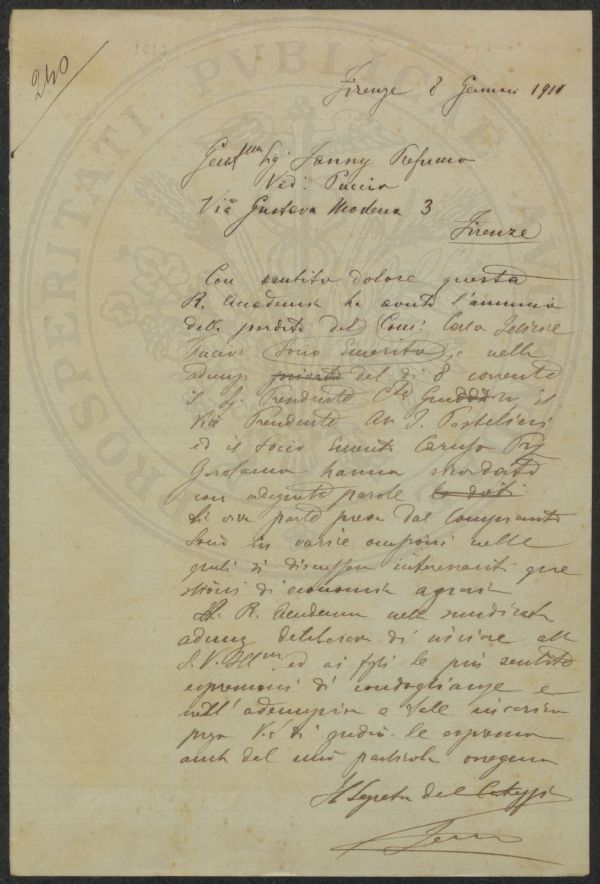 240
1013
PROSPERITATI PVBLICAE AV
Firenze 8 Gennaio 1911
Gent.ma Sig. Fanny
Ved: Puccio
Via Gustavo Modena 3
Firenze
Con sentito dolore questa
R. Accademia ha avuto l'annuncio
della perdita del Com: Carlo
Socio Emerito, e nella
adunz del dì 8 corrente
il Sig. Presidente Cte il
Vice Presidente Av
ed il Socio Emerito Caruso Prof
Girolamo hanno ricordato
con adeguate parole
la viva parte presa dal Compianto
Socio in varie occasioni nelle
quali si discussero interessanti que
stioni di economia agraria
La R. Accademia nella sundicata
adunz deliberava di inviare alla
S. V. Ill.ma ed ai figli le più sentite
espressioni di condoglianze e
nell'adempiere a tale incarico
prego V.S. di gradire le espressioni
anche del mio particolare ossequio
Il Segretario del